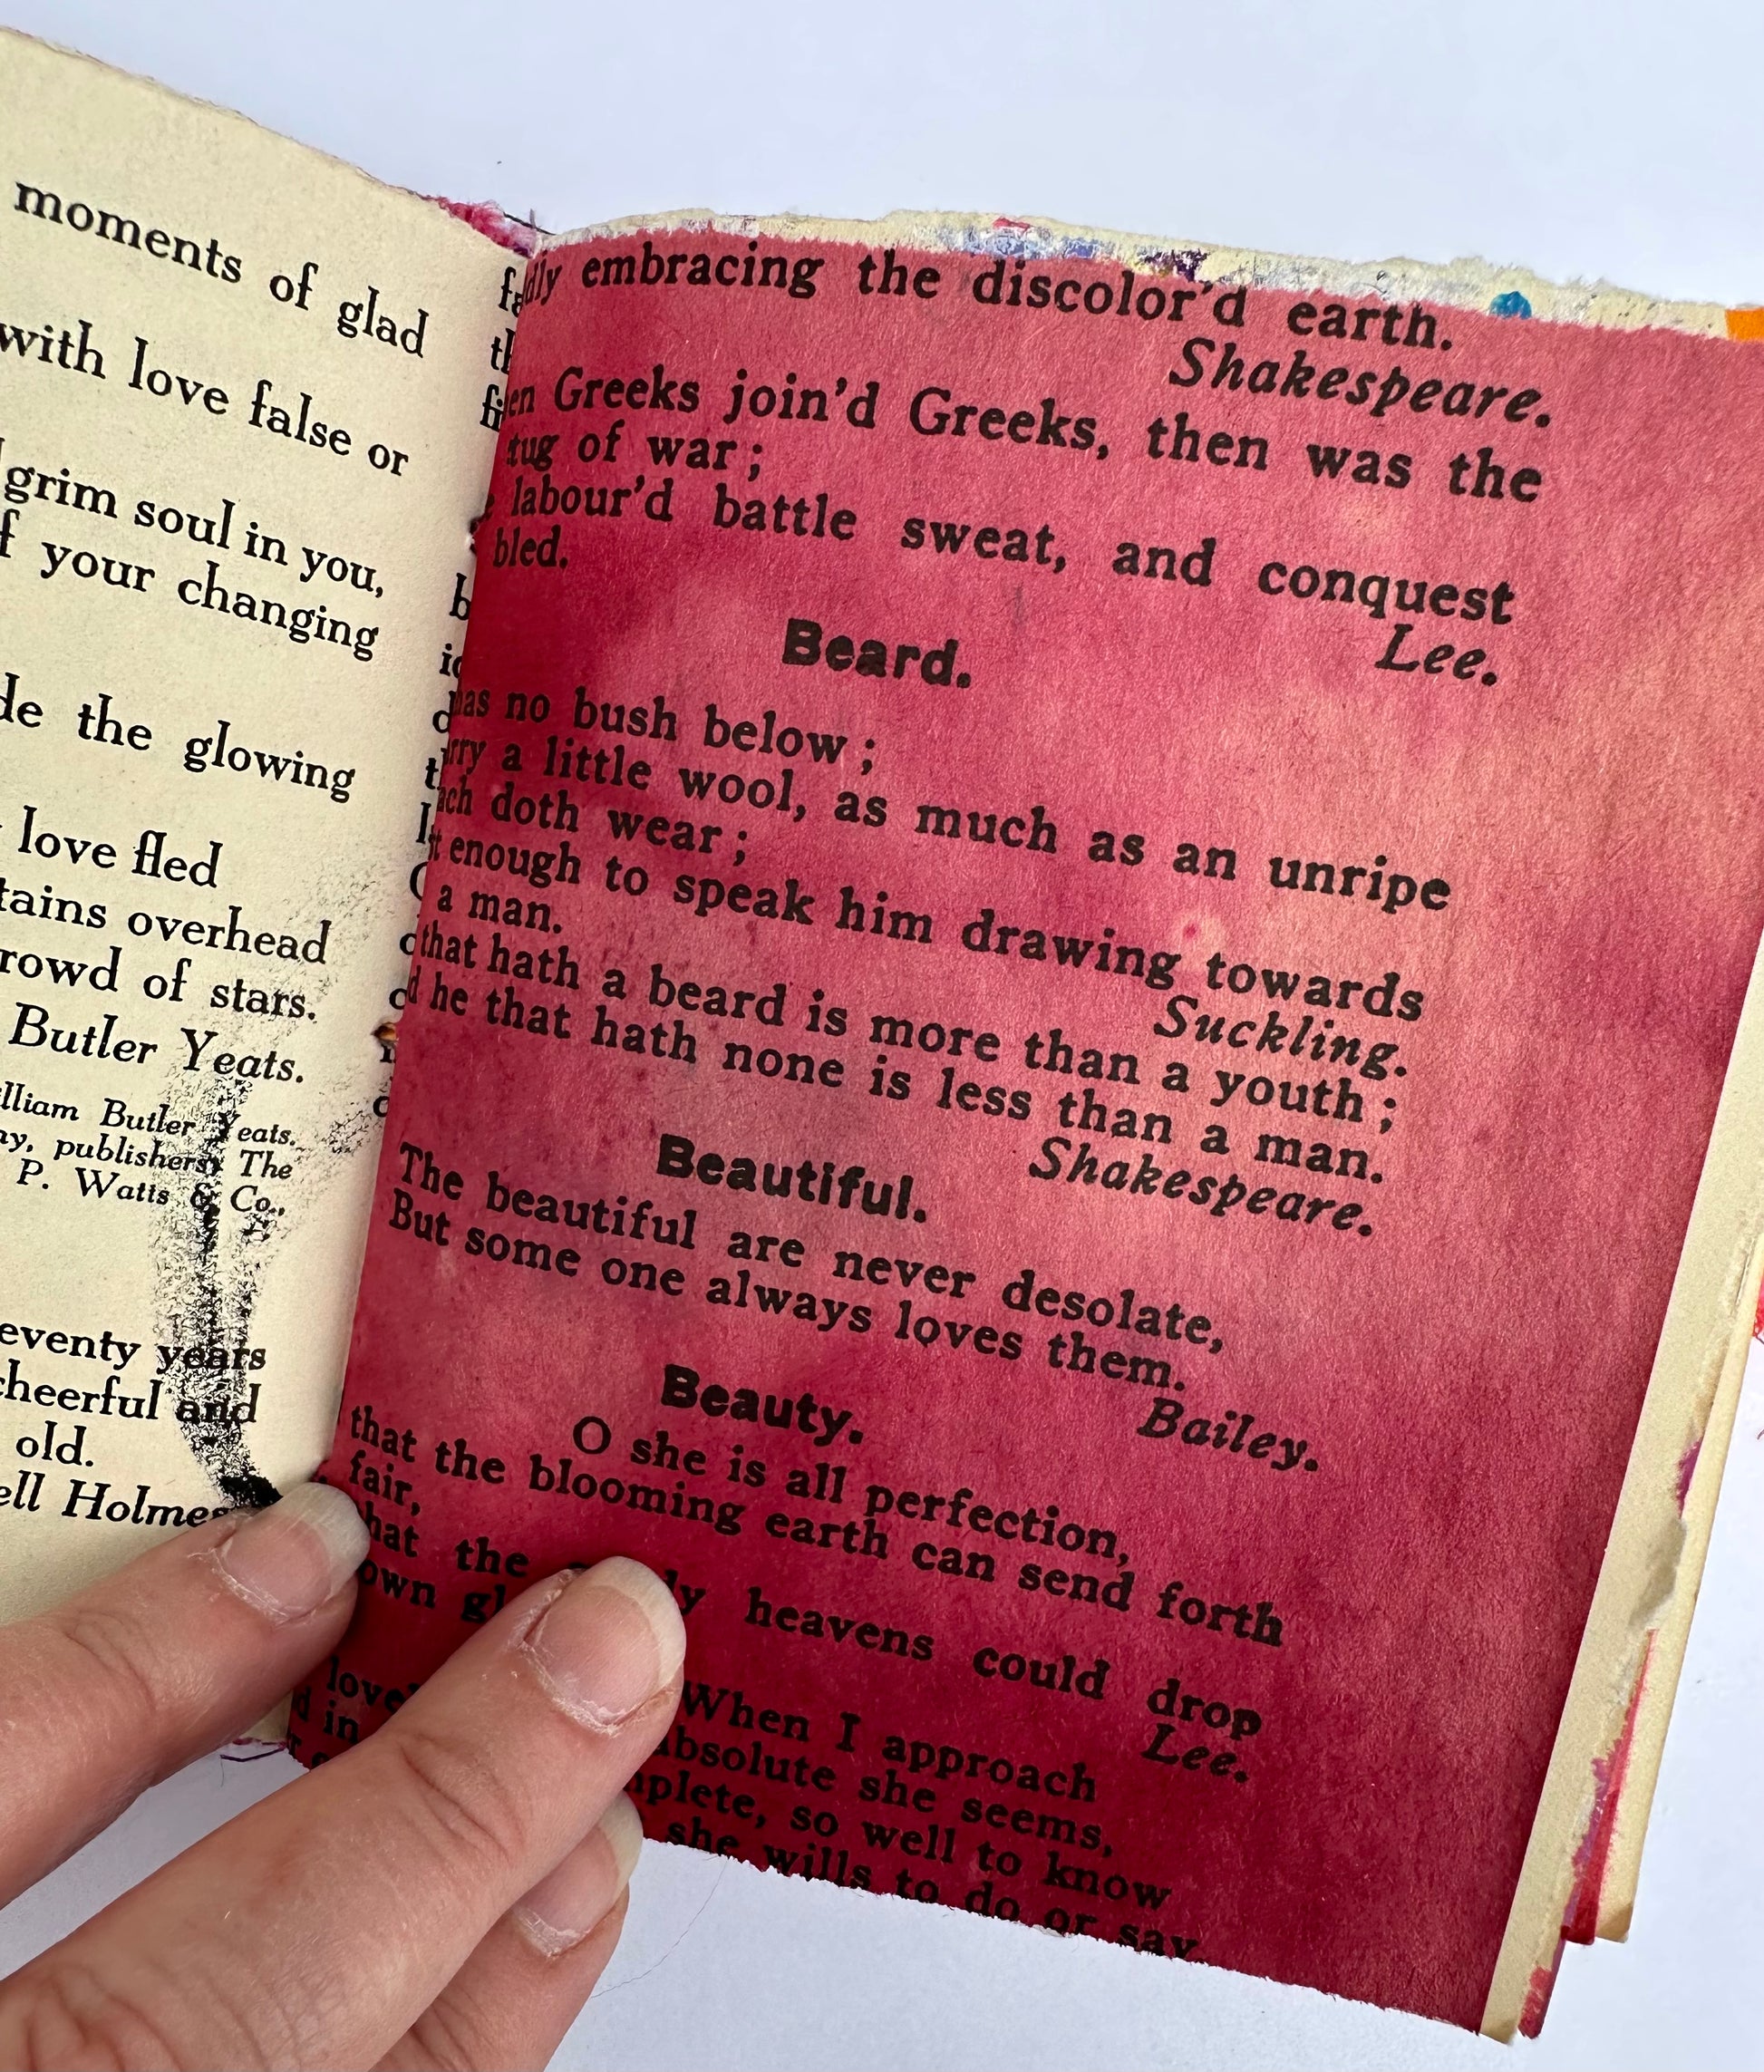 moments of glad
with love false or
grim soul in you,
your changing
the glowing
love fled
overhead
of stars.
Butler Yeats.
Butler Yeats.
publishers, The
P. Watts & Co.,
years
cheerful and
old.
Holmes
embracing the discolor'd earth.
Shakespeare.
Greeks join'd Greeks, then was the
tug of war;
labour'd battle sweat, and conquest
bled.
Lee.
Beard.
has no bush below;
a little wool, as much as an unripe
doth wear;
enough to speak him drawing towards
a man.
Suckling.
that hath a beard is more than a youth;
he that hath none is less than a man.
Shakespeare.
Beautiful.
The beautiful are never desolate,
But some one always loves them.
Bailey.
Beauty.
O she is all perfection,
that the blooming earth can send forth
fair,
that the heavens could drop
own
Lee.
When I approach
in absolute she seems,
so well to know
she wills to do or say